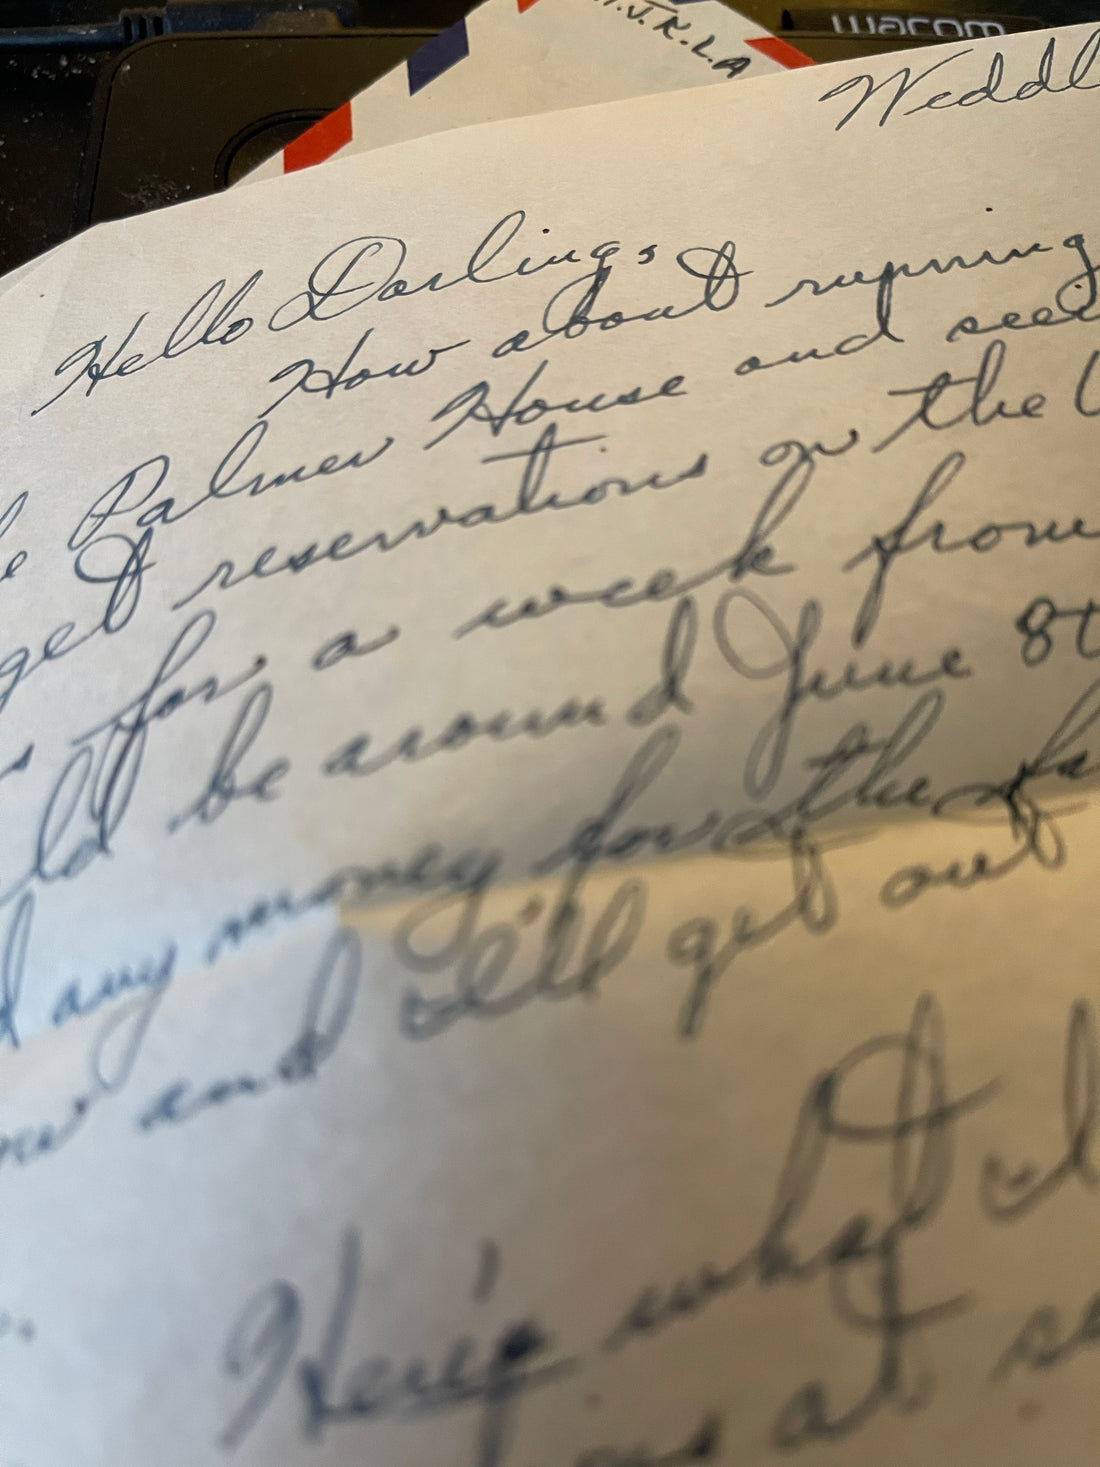 wacom
.J.K.L.A
Weddl
Hello Darlings
How about running
Palmer House and seei
get reservations on the
for a week from
ld be around June 8t
any money for the
and I'll get out
Here's what I
at se